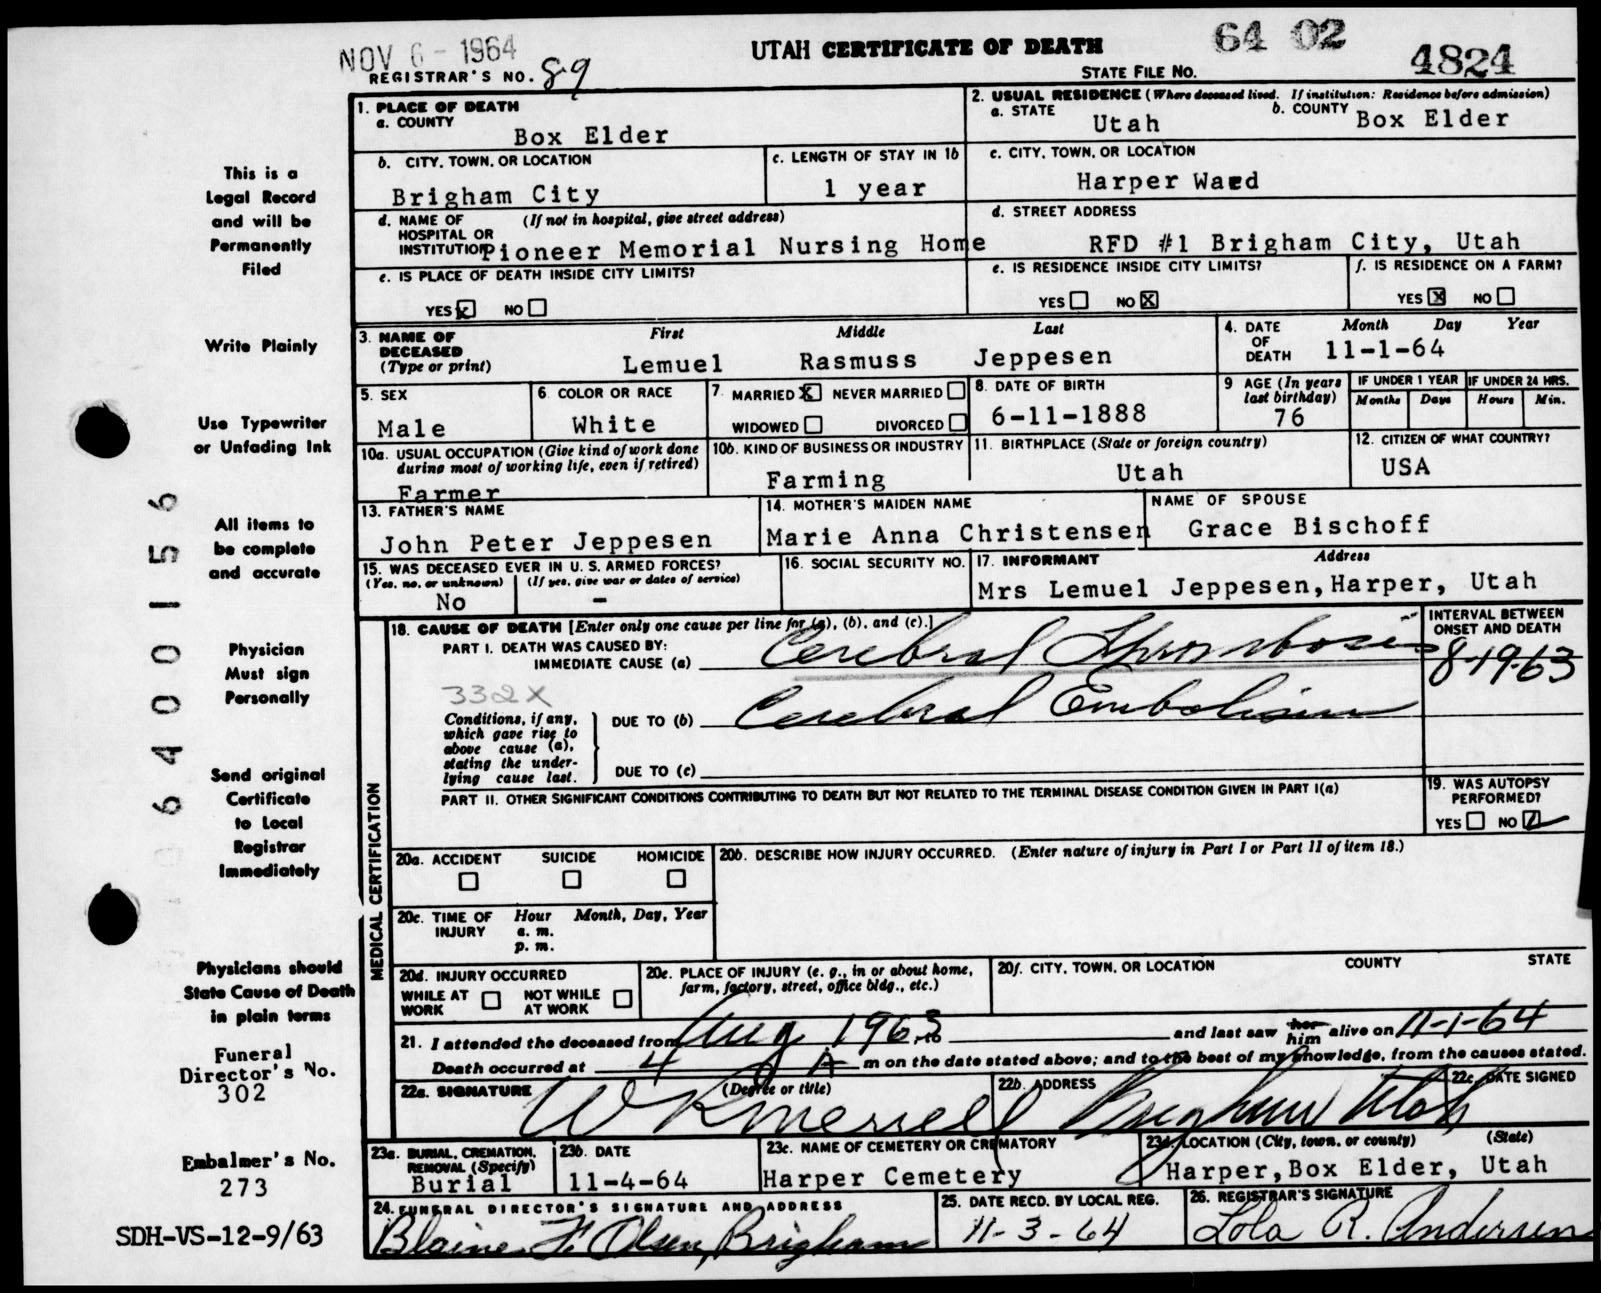 NOV 6 - 1964
UTAH CERTIFICATE OF DEATH
64 02
REGISTRAR'S NO. 89
STATE FILE NO. 4824
1. PLACE OF DEATH
a. COUNTY
Box Elder
2. USUAL RESIDENCE (Where deceased lived. If institution: Residence before admission)
a. STATE Utah b. COUNTY Box Elder
b. CITY, TOWN, OR LOCATION
Brigham City
c. LENGTH OF STAY IN 1b
1 year
c. CITY, TOWN, OR LOCATION
Harper Ward
d. NAME OF HOSPITAL OR INSTITUTION (If not in hospital, give street address)
Pioneer Memorial Nursing Home
d. STREET ADDRESS
RFD #1 Brigham City, Utah
e. IS PLACE OF DEATH INSIDE CITY LIMITS?
YES x NO
e. IS RESIDENCE INSIDE CITY LIMITS?
YES NO x
f. IS RESIDENCE ON A FARM?
YES x NO
3. NAME OF DECEASED (Type or print)
First Middle Last
Lemuel Rasmuss Jeppesen
4. DATE OF DEATH
Month Day Year
11-1-64
5. SEX
Male
6. COLOR OR RACE
White
7. MARRIED x NEVER MARRIED
WIDOWED DIVORCED
8. DATE OF BIRTH
6-11-1888
9 AGE (In years last birthday)
76
IF UNDER 1 YEAR
Months Days
IF UNDER 24 HRS.
Hours Min.
10a. USUAL OCCUPATION (Give kind of work done during most of working life, even if retired)
Farmer
10b. KIND OF BUSINESS OR INDUSTRY
Farming
11. BIRTHPLACE (State or foreign country)
Utah
12. CITIZEN OF WHAT COUNTRY?
USA
13. FATHER'S NAME
John Peter Jeppesen
14. MOTHER'S MAIDEN NAME
Marie Anna Christensen
NAME OF SPOUSE
Grace Bischoff
15. WAS DECEASED EVER IN U. S. ARMED FORCES?
(Yes, no, or unknown) (If yes, give war or dates of service)
No -
16. SOCIAL SECURITY NO.
17. INFORMANT Address
Mrs Lemuel Jeppesen, Harper, Utah
MEDICAL CERTIFICATION
18. CAUSE OF DEATH [Enter only one cause per line for (a), (b), and (c).]
PART I. DEATH WAS CAUSED BY:
IMMEDIATE CAUSE (a) Cerebral Thrombosis
INTERVAL BETWEEN ONSET AND DEATH
8-19-63
332X
Conditions, if any, which gave rise to above cause (a), stating the underlying cause last.
DUE TO (b) Cerebral Embolism
DUE TO (c)
PART II. OTHER SIGNIFICANT CONDITIONS CONTRIBUTING TO DEATH BUT NOT RELATED TO THE TERMINAL DISEASE CONDITION GIVEN IN PART I(a)
19. WAS AUTOPSY PERFORMED?
YES NO
20a. ACCIDENT SUICIDE HOMICIDE
20b. DESCRIBE HOW INJURY OCCURRED. (Enter nature of injury in Part I or Part II of item 18.)
20c. TIME OF INJURY Hour Month, Day, Year
a. m.
p. m.
20d. INJURY OCCURRED
WHILE AT WORK NOT WHILE AT WORK
20e. PLACE OF INJURY (e. g., in or about home, farm, factory, street, office bldg., etc.)
20f. CITY, TOWN, OR LOCATION COUNTY STATE
21. I attended the deceased from Aug 1963 to and last saw her him alive on 11-1-64
Death occurred at 4 A m on the date stated above; and to the best of my knowledge, from the causes stated.
22a. SIGNATURE (Degree or title)
W K Merrell
22b. ADDRESS
Brigham Utah
22c. DATE SIGNED
23a. BURIAL, CREMATION, REMOVAL (Specify)
Burial
23b. DATE
11-4-64
23c. NAME OF CEMETERY OR CREMATORY
Harper Cemetery
23d. LOCATION (City, town, or county) (State)
Harper, Box Elder, Utah
24. FUNERAL DIRECTOR'S SIGNATURE AND ADDRESS
Blaine F. Olsen, Brigham
25. DATE RECD. BY LOCAL REG.
11-3-64
26. REGISTRAR'S SIGNATURE
Lola R. Andersen
This is a
Legal Record
and will be
Permanently
Filed
Write Plainly
Use Typewriter
or Unfading Ink
All items to
be complete
and accurate
Physician
Must sign
Personally
Send original
Certificate
to Local
Registrar
Immediately
Physicians should
State Cause of Death
in plain terms
Funeral
Director's No.
302
Embalmer's No.
273
SDH-VS-12-9/63
6400156